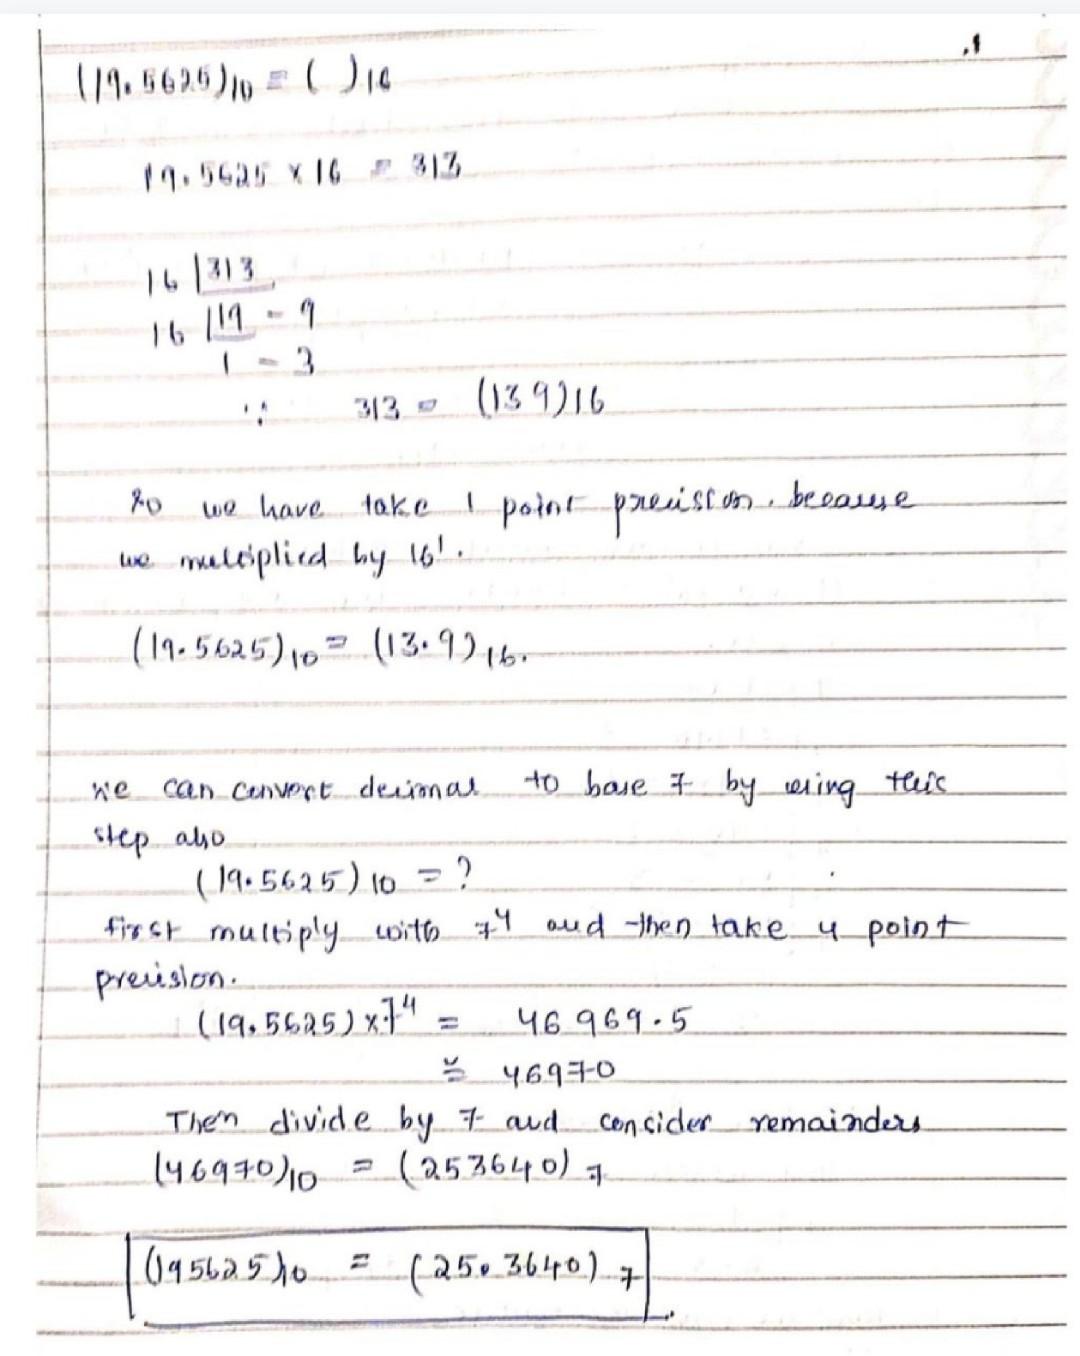 .1
(19.5625)10 = ( )16
19.5625 x 16 = 313
16 | 313
16 | 19 - 9
1 - 3
∵ 313 = (139)16
so we have take 1 point precision. because
we multiplied by 16¹.
(19.5625)10 = (13.9)16.
we can convert decimal to base 7 by using this
step also
(19.5625)10 = ?
first multiply with 7⁴ and then take 4 point
precision.
(19.5625) x 7⁴ = 46969.5
≅ 46970
Then divide by 7 and consider remainders
(46970)10 = (253640)7
(195625)10 = (25.3640)7.